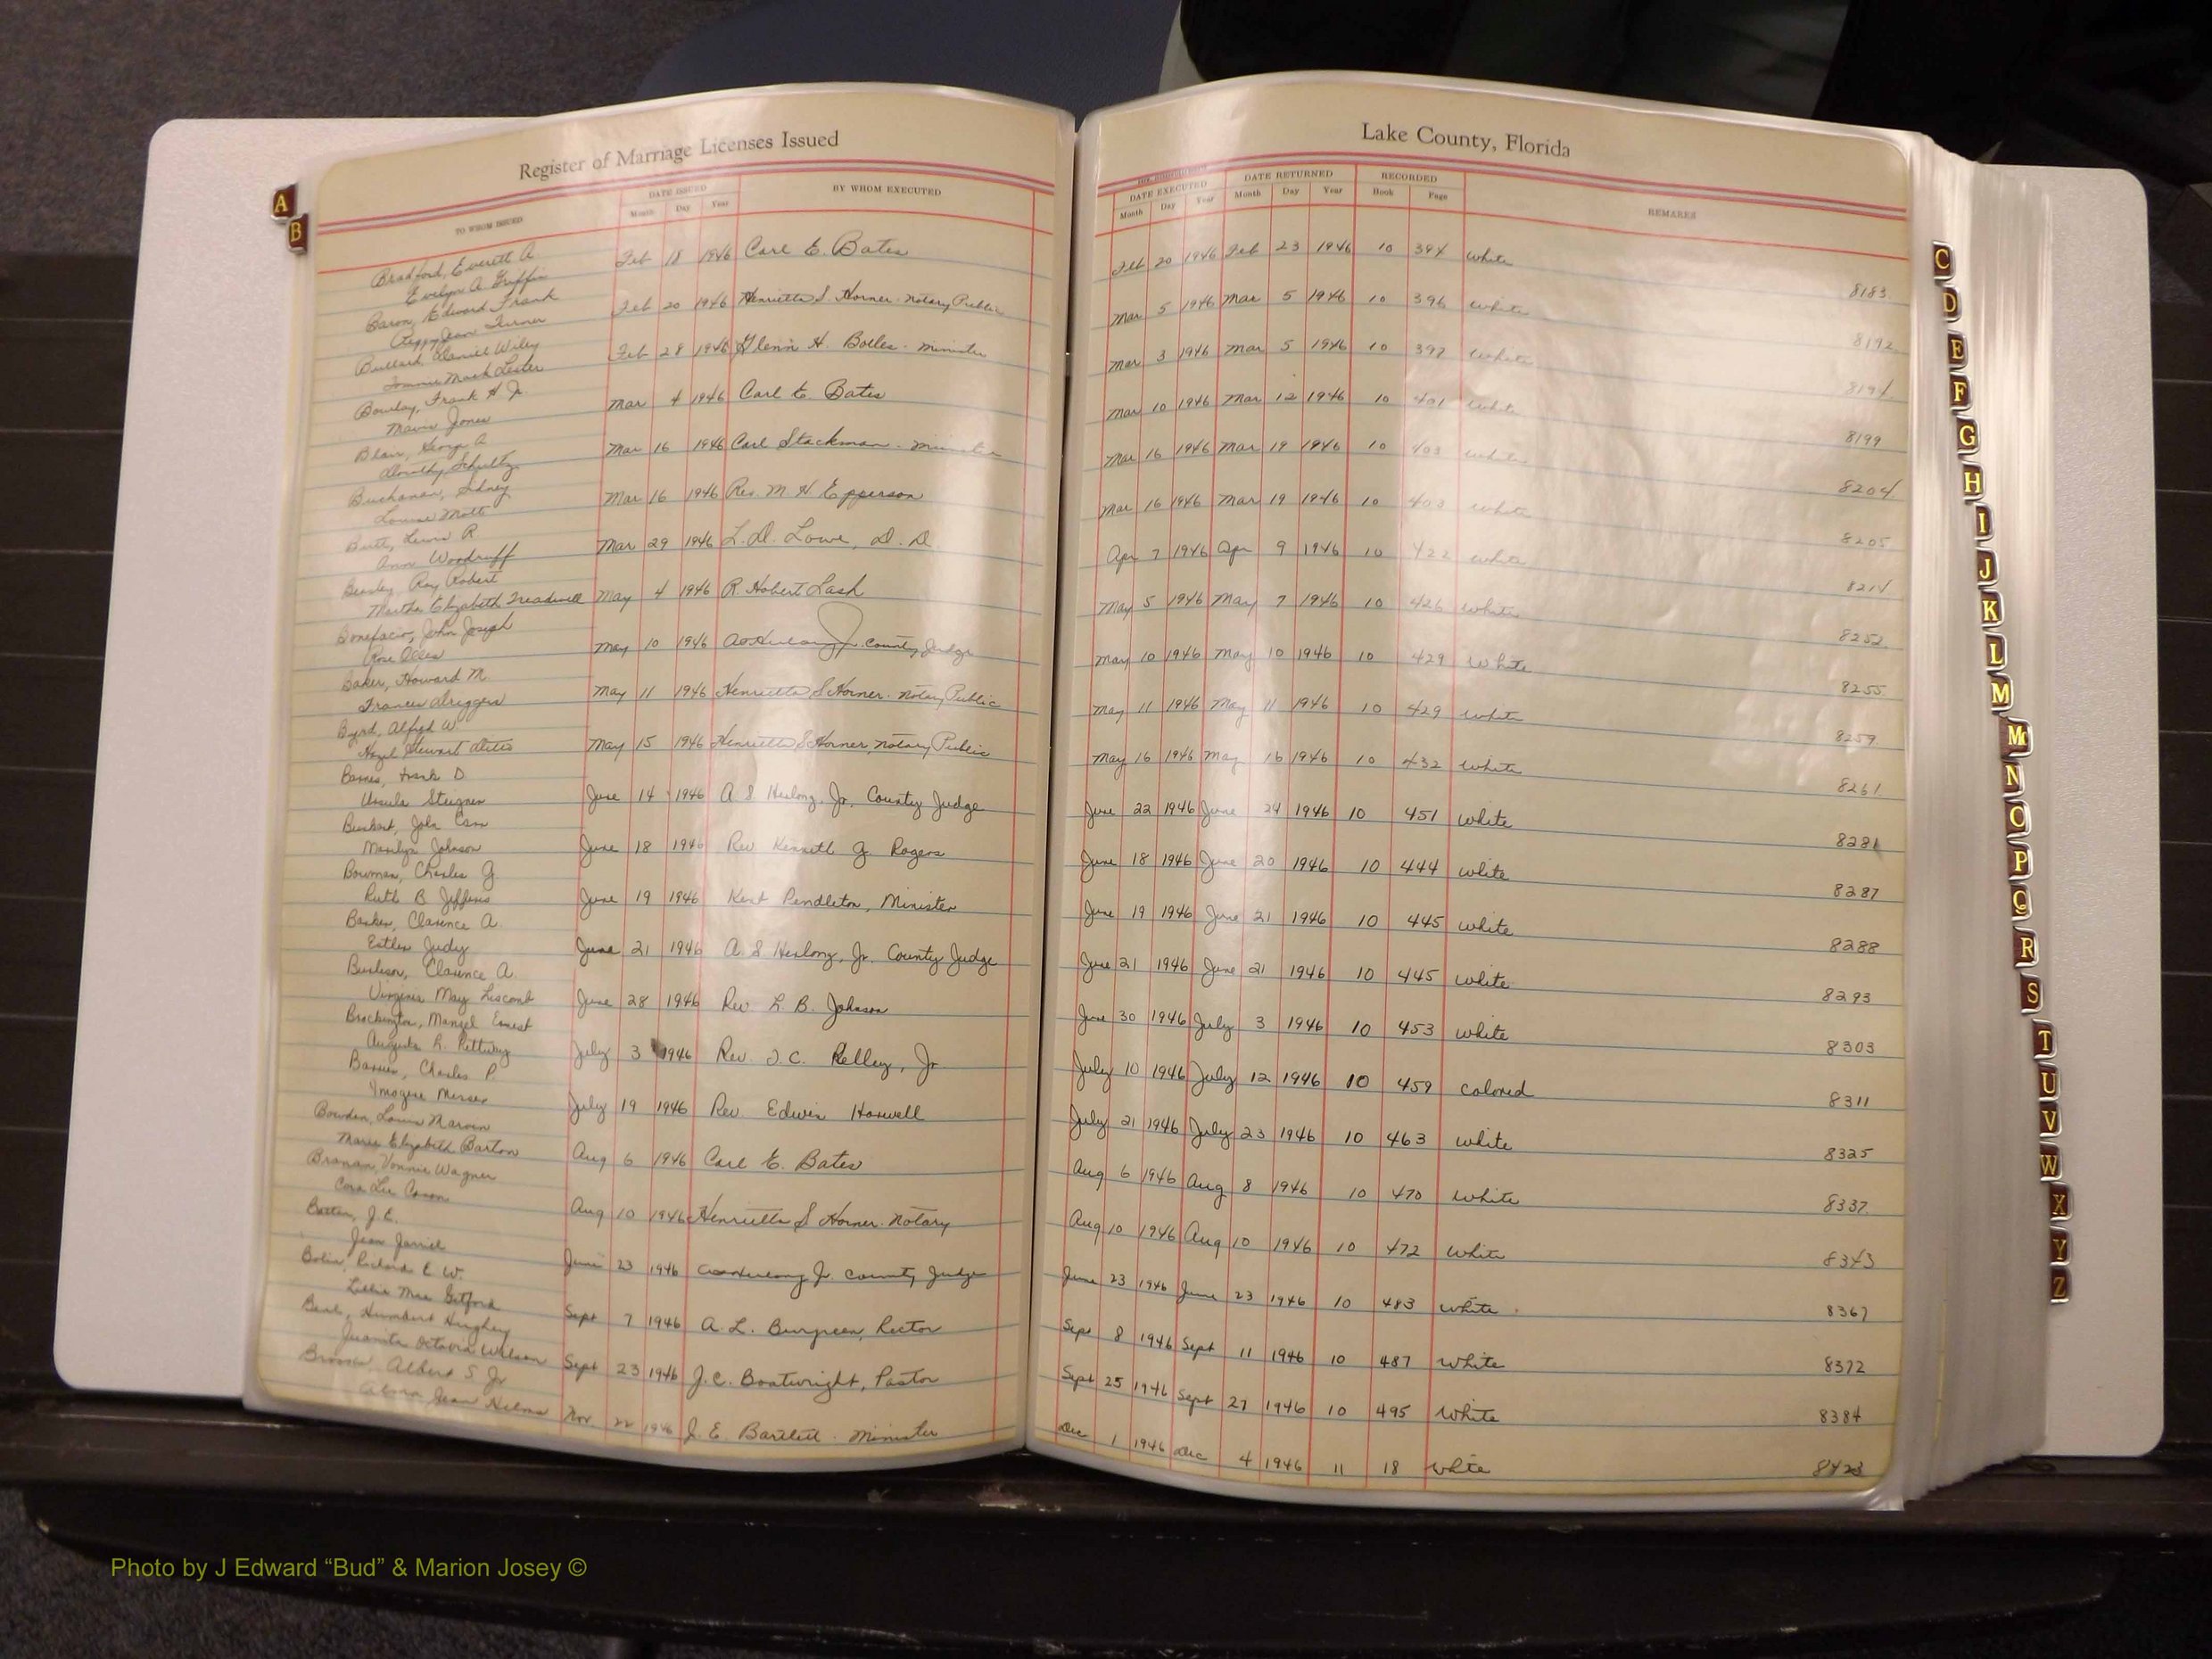 Register of Marriage Licenses Issued
Lake County, Florida
TO WHOM ISSUED DATE ISSUED Month Day Year BY WHOM EXECUTED
DATE EXECUTED Month Day Year DATE RETURNED Month Day Year RECORDED Book Page REMARKS
A
B
Bradford, Everett A
Evelyn A. Griffin Feb 18 1946 Carl E. Bates Feb 20 1946 Feb 23 1946 10 394 white 8183
Baron, Edward Frank
Peggy Jean Turner Feb 20 1946 Henrietta S. Horner - Notary Public Mar 5 1946 Mar 5 1946 10 396 white 8192
Bullard, Daniel Wiley
Mack Lester Feb 28 1946 Glenn H. Bolles - minister Mar 3 1946 Mar 5 1946 10 397 white 8194
Frank H Jr
Mavis Jones Mar 4 1946 Carl E Bates Mar 10 1946 Mar 12 1946 10 401 white 8199
Blair, George A
Dorothy Schultz Mar 16 1946 Carl Stackman - minister Mar 16 1946 Mar 19 1946 10 403 white 8204
Buchanan, Sidney
Louise Mar 16 1946 Rev. M. H. Epperson Mar 16 1946 Mar 19 1946 10 403 white 8205
Butt, Lewis R
Ann Woodruff Mar 29 1946 L. D. Lowe, D. D. Apr 7 1946 Apr 9 1946 10 422 white 8214
Roy Robert
Martha Elizabeth Treadwell May 4 1946 R. Hobert Lash May 5 1946 May 7 1946 10 426 white 8252
Bonefacio, John Joseph
Rose May 10 1946 Jr. County Judge May 10 1946 May 10 1946 10 429 White 8255
Baker, Howard M.
Frances Driggers May 11 1946 Henrietta S Horner - Notary Public May 11 1946 May 11 1946 10 429 white 8259
Byrd, W
Hazel Stewart May 15 1946 Henrietta S Horner, Notary Public May 16 1946 May 16 1946 10 432 white 8261
Barnes, Frank D.
Ursula June 14 1946 A. S Herlong, Jr, County Judge June 22 1946 June 24 1946 10 451 white 8281
John
Marilyn Johnson June 18 1946 Rev Kenneth G. Rogers June 18 1946 June 20 1946 10 444 white 8287
Bowman, Charles G.
Ruth B Jefferis June 19 1946 Kent Pendleton, Minister June 19 1946 June 21 1946 10 445 white 8288
Barker, Clarence A.
Esther Judy June 21 1946 A. S Herlong, Jr. County Judge June 21 1946 June 21 1946 10 445 white 8293
Burleson, Clarence A.
Virginia May Liscomb June 28 1946 Rev L. B. Johnson June 30 1946 July 3 1946 10 453 white 8303
Brockington, Manyel Ernest
July 3 1946 Rev J. C. Kelley, Jr July 10 1946 July 12 1946 10 459 colored 8311
Charles P.
Imogene July 19 1946 Rev. Edwin Haswell July 21 1946 July 23 1946 10 463 white 8325
Bowden, Louis Marvin
Marie Elizabeth Barton Aug 6 1946 Carl E. Bates Aug 6 1946 Aug 8 1946 10 470 white 8337
Branan, Vonnie Wagner
Cora Lee Aug 10 1946 Henrietta S Horner - Notary Aug 10 1946 Aug 10 1946 10 472 white 8343
J. E.
Jean June 23 1946 Jr. County Judge June 23 1946 June 23 1946 10 483 white 8367
Richard E. W.
Lillie Mae Sept 7 1946 A. L. Burgreen, Rector Sept 8 1946 Sept 11 1946 10 487 white 8372
Humbert Hughey
Juanita Octavia Wilson Sept 23 1946 J. C. Boatwright, Pastor Sept 25 1946 Sept 27 1946 10 495 White 8384
Albert S. Jr
Jean Helms Nov 22 1946 J. E. Bartlett - Minister Dec 1 1946 Dec 4 1946 11 18 White 8423
C
D
E
F
G
H
I
J
K
L
M
Mc
N
O
P
Q
R
S
T
U
V
W
X
Y
Z
Photo by J Edward “Bud” & Marion Josey ©